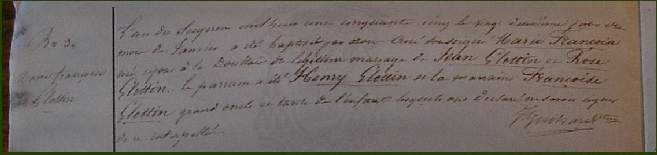 Bme 3e
L'an du Seigneur mil huit cent cinquante cinq le vingt deuxième jour du
mois de Janvier a été baptisé par moi Curé soussigné Marie Françoise
née à la de légitime mariage de Jean Glottin et Rose
Marie Françoise
Glottin. Le parrain a été Henry Glottin et la marraine Françoise
Glottin
Glottin grand oncle et tante de l'enfant lesquels ont déclaré ne savoir signer
de ce interpellé
Guihard